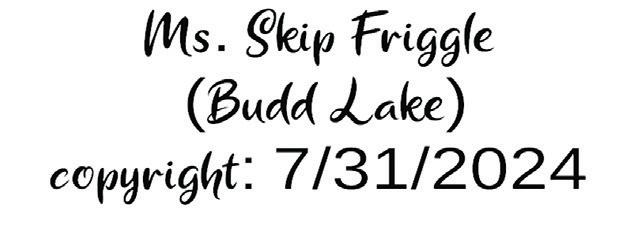 Ms. Skip Friggle
(Budd Lake)
copyright: 7/31/2024